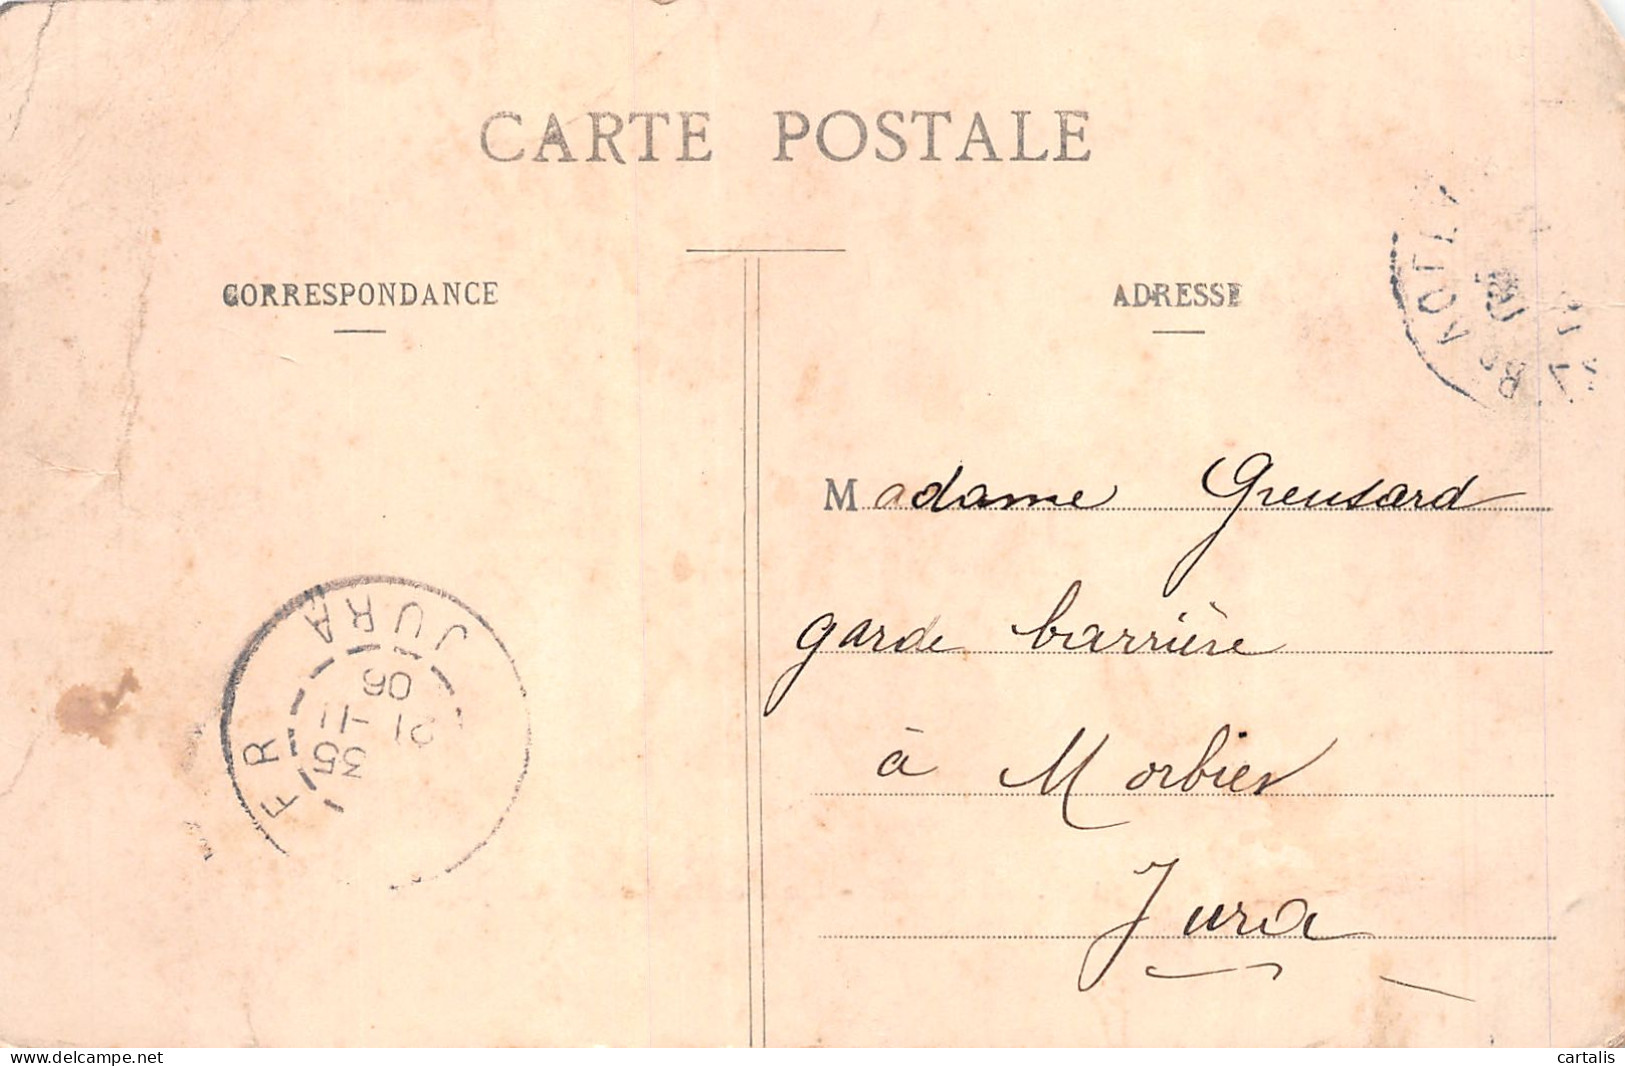 CARTE POSTALE
CORRESPONDANCE
ADRESSE
Madame Greusard
garde barrière
à Morbier
Jura
JURA
FR
35
21 -11
06
delcampe.net
cartalis